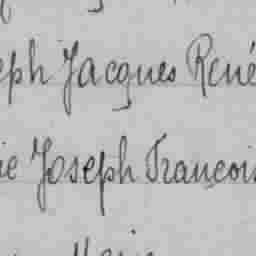 eph Jacques René
ie Joseph Francois